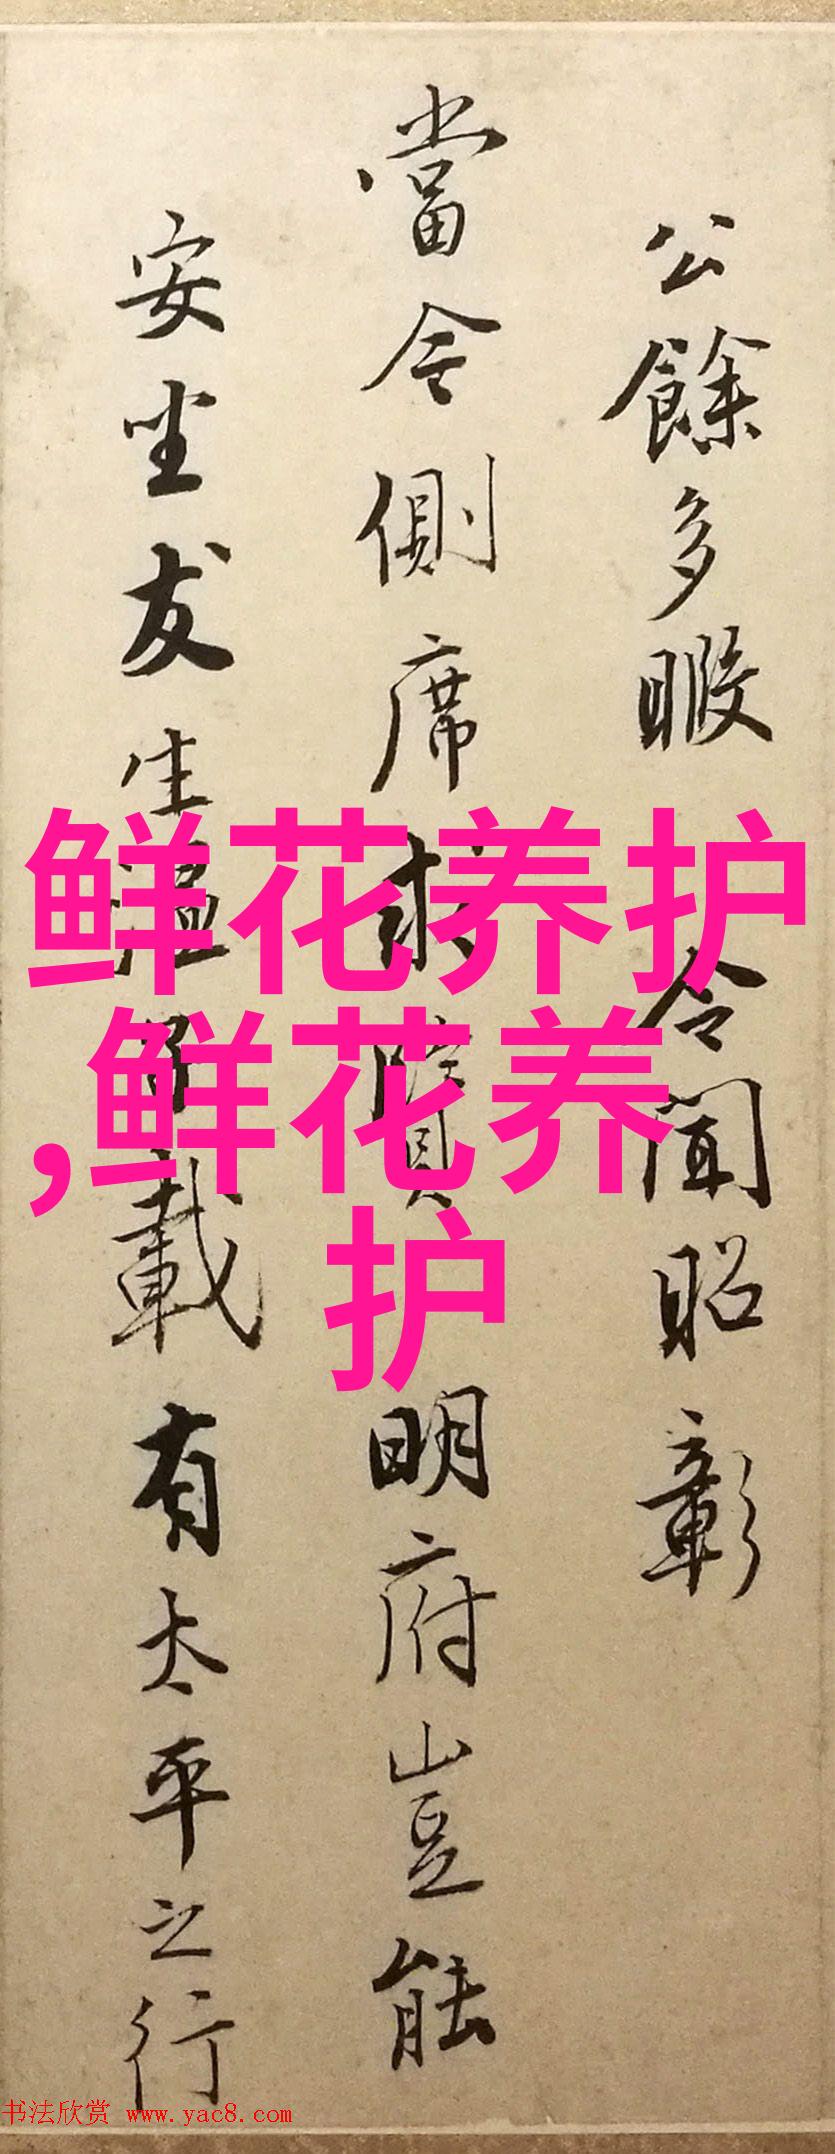 公餘多暇 令聞昭彰
當令側席求 明府豈能
安坐友生 載有太平之行
鲜花养护
,鲜花养
护
书法欣赏 www.yac8.com